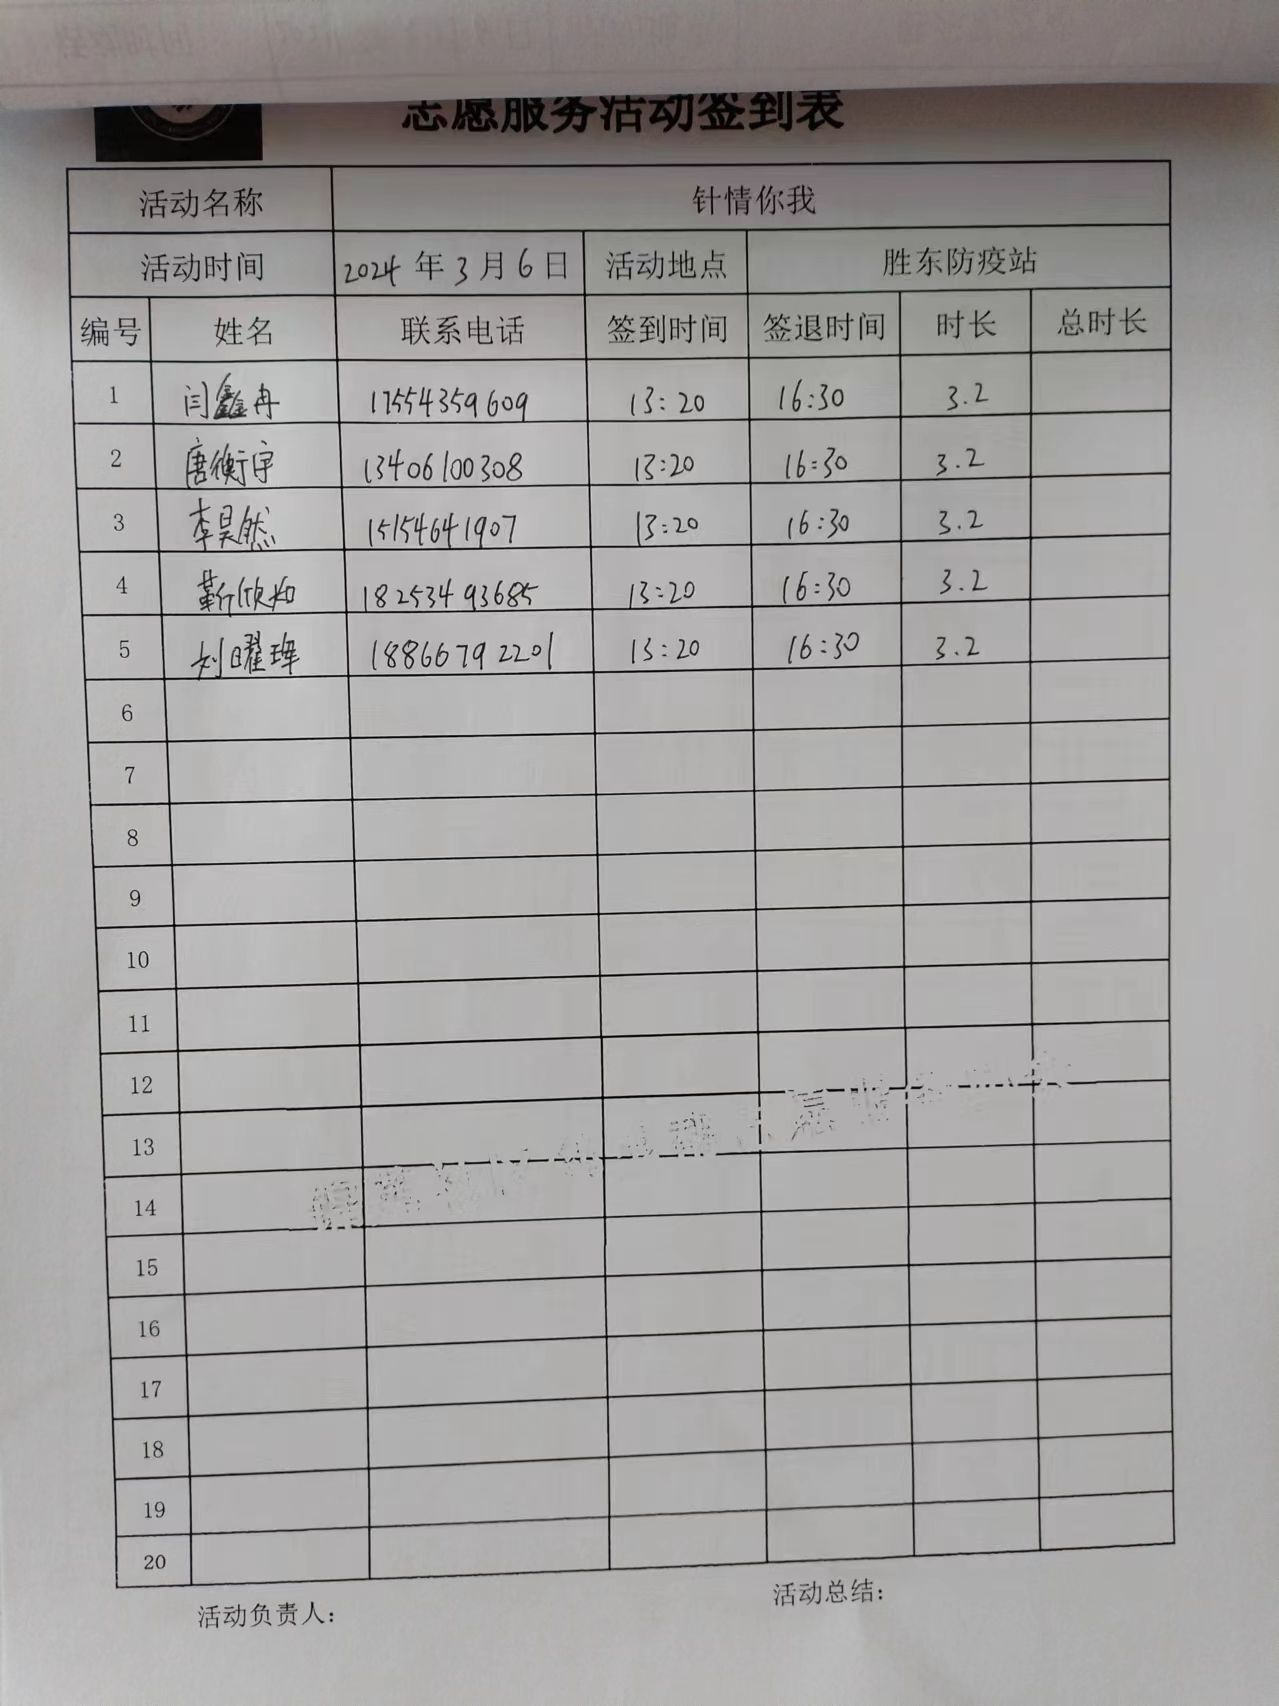 志愿服务活动签到表
活动名称 针情你我
活动时间 2024年3月6日 活动地点 胜东防疫站
编号 姓名 联系电话 签到时间 签退时间 时长 总时长
1 闫鑫冉 17554359609 13:20 16:30 3.2
2 唐衡宇 13406100308 13:20 16:30 3.2
3 李昊然 15154641907 13:20 16:30 3.2
4 靳欣如 18253493685 13:20 16:30 3.2
5 刘曜玮 18866792201 13:20 16:30 3.2
6
7
8
9
10
11
12
13
14
15
16
17
18
19
20
活动负责人: 活动总结: